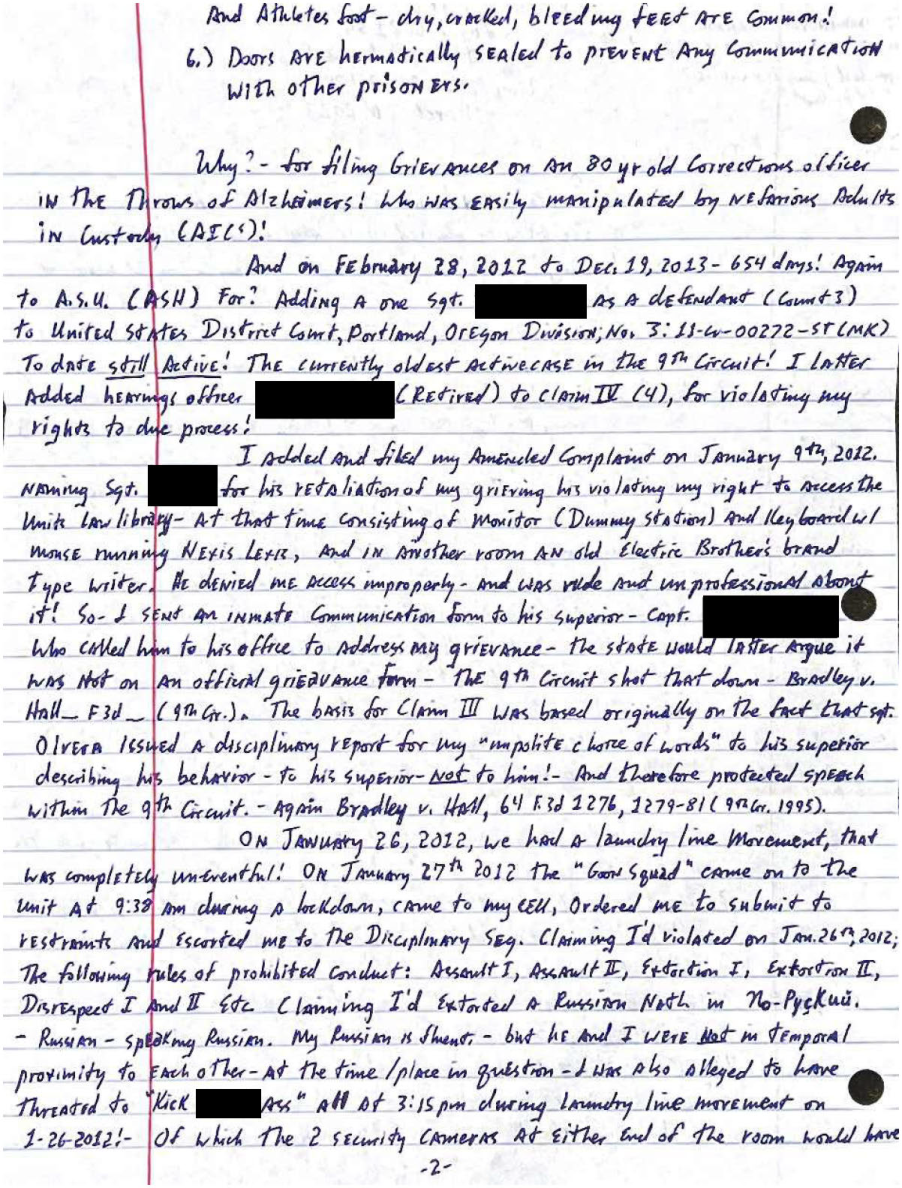 And Athletes foot - dry, cracked, bleeding feet are common!
6.) Doors are hermatically sealed to prevent any communication
with other prisoners.
Why? - for filing Grievances on an 80 yr old Corrections officer
in the Throws of Alzheimers! Who was easily manipulated by nefarious Adults
in Custody (AICs)!
And on February 28, 2012 to Dec. 19, 2013 - 654 days! Again
to A.S.U. (ASH) For? Adding a one Sgt. As a defendant (Count 3)
to United States District Court, Portland, Oregon Division, No. 3:11-cv-00272-ST (MK)
To date still Active! The currently oldest active case in the 9th Circuit! I latter
Added hearings officer (Retired) to claim IV (4), for violating my
rights to due process!
I added and filed my Amended Complaint on January 9th, 2012.
Naming Sgt. for his retaliation of my grieving his violating my right to access the
Units law library - At that time consisting of monitor (Dummy Station) and Keyboard w/
mouse running Nexis Lexis, and in another room an old Electric Brother's brand
Type writer. He denied me access improperly - and was rude and unprofessional about
it! So - I sent an inmate communication form to his superior - Capt.
Who called him to his office to address my grievance - the state would latter argue it
was not on an official grieavance form - The 9th Circuit shot that down - Bradley v.
Hall_ F3d_ (9th Cir.). The basis for Claim III was based originally on the fact that sgt.
Olvera issued a disciplinary report for my "impolite choice of words" to his superior
describing his behavior - to his superior - Not to him! - And therefore protected speech
within the 9th Circuit. - Again Bradley v. Hall, 64 F.3d 1276, 1279-81 (9th Cir. 1995).
On January 26, 2012, we had a laundry line movement, that
was completely uneventful! On January 27th 2012 the "Goon Squad" came on to the
unit at 9:38 am during a lockdown, came to my cell, ordered me to submit to
restraints and escorted me to the Disciplinary Seg. Claiming I'd violated on Jan. 26th, 2012;
The following rules of prohibited conduct: Assault I, Assault II, Extortion I, Extortion II,
Disrespect I and II Etc. Claiming I'd extorted a Russian Nath in По-Руский.
- Russian - speaking Russian. My Russian is fluent, - but he and I were Not in temporal
proximity to each other - at the time/place in question - I was also alleged to have
threated to "Kick Ass" all at 3:15 pm during laundry line movement on
1-26-2012! - Of which the 2 security cameras at either end of the room would have
-2-